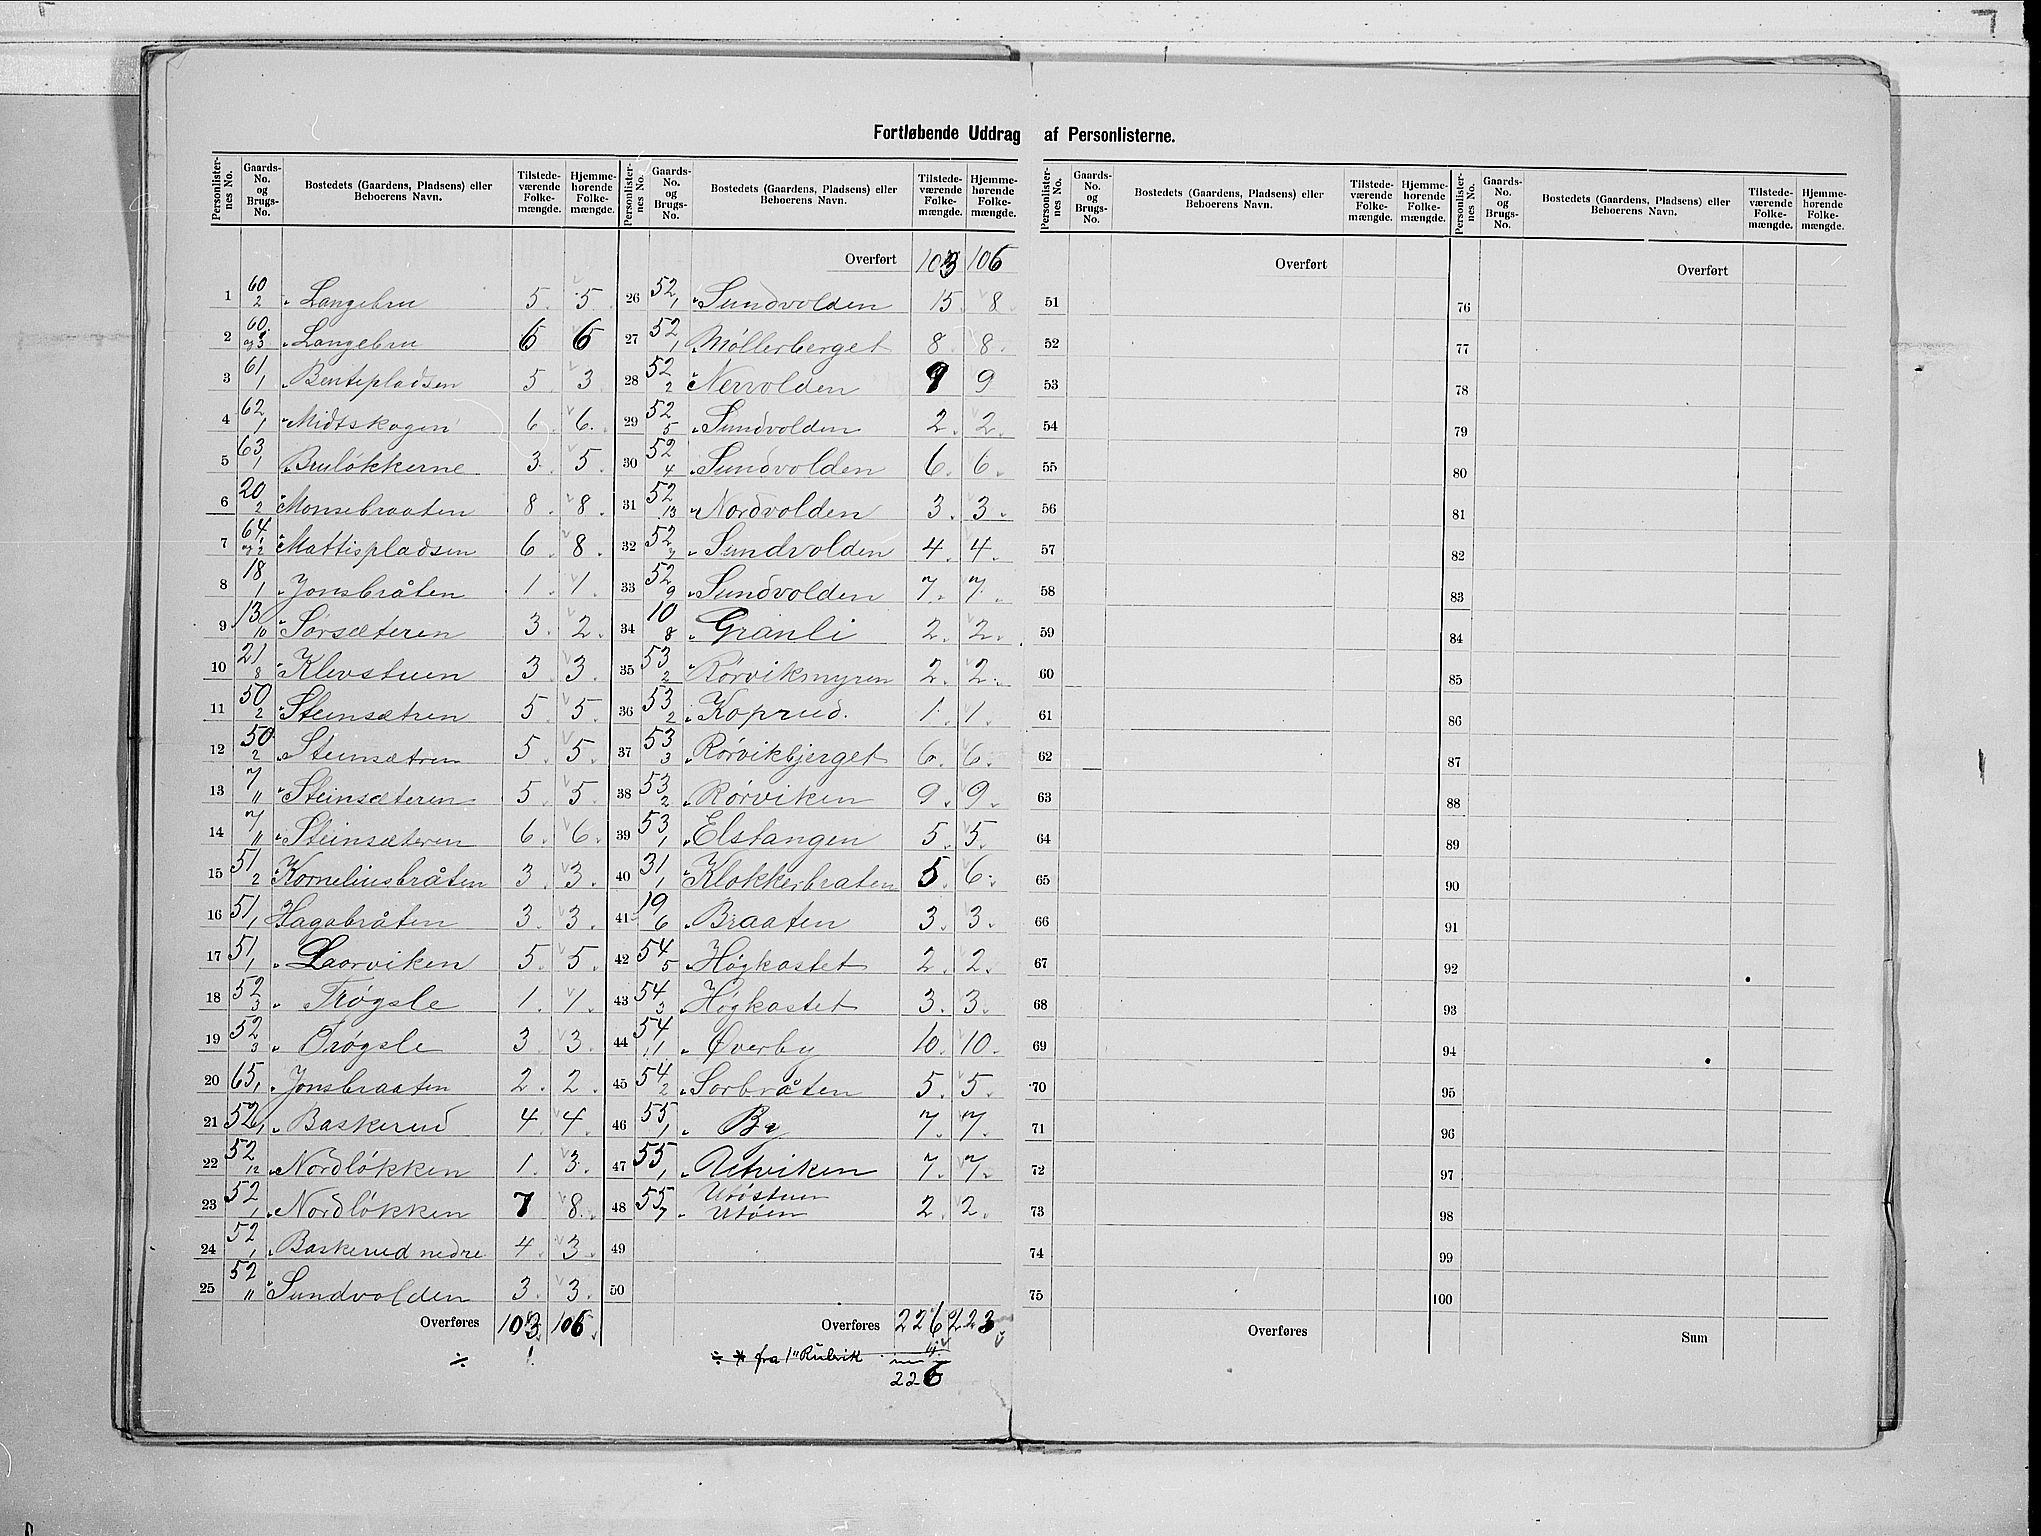 Fortløbende Uddrag af Personlisterne.
Personlisternes No. Gaards-No. og Brugs-No. Bostedets (Gaardens, Pladsens) eller Beboerens Navn. Tilstedeværende Folkemængde. Hjemmehørende Folkemængde.
1 60/2 " Langebru 5. 5.
2 60/ og 3 " Langebru 6 6
3 61/1 " Bentepladsen 5. 3.
4 62/1 " Midtskogen 6. 6.
5 63/1 " Bruløkkerne 3. 5.
6 20/2 " Monsebraaten 8. 8.
7 64/1 og 2 " Mattispladsen 6. 8.
8 18/1 " Jonsbråten 1. 1.
9 13/10 " Sørsæteren 3. 2.
10 21/8 " Klevstuen 3. 3.
11 50/2 " Steinsætren 5. 5.
12 50/2 " Steinsætren 5. 5.
13 7/11 " Steinsæteren 5. 5.
14 7/11 " Steinsæteren 6. 6.
15 51/2 " Korneliusbråten 3. 3.
16 51/1 Hagabråten 3. 3.
17 51/1 " Laorviken 5. 5.
18 52/3 " Trøgsle 1. 1.
19 52/3 " Trøgsle 3. 3.
20 65/1 " Jonsbraaten 2. 2.
21 52/1 " Baskerud 4. 4.
22 52/12 " Nordløkken 1. 3.
23 52/1 " Nordløkken 7 8.
24 52/1 " Baskerud nedre 4. 3.
25 52/11 " Sundvolden 3. 3.
Overføres 103. 106.
÷ 1.
Personlisternes No. Gaards-No. og Brugs-No. Bostedets (Gaardens, Pladsens) eller Beboerens Navn. Tilstedeværende Folkemængde. Hjemmehørende Folkemængde.
Overført 103 106
26 52/1 " Sundvolden 15. 8.
27 52/1 " Møllerberget 8. 8.
28 52/2 " Nervolden 9 9
29 52/5 " Sundvolden 2. 2.
30 52/4 " Sundvolden 6. 6.
31 52/13 " Nordvolden 3. 3.
32 52/7 " Sundvolden 4. 4.
33 52/9 " Sundvolden 7. 7.
34 10/8 " Granli 2. 2.
35 53/2 " Rørviksmyren 2. 2.
36 53/2 " Koprud. 1. 1.
37 53/3 " Rørvikbjerget 6. 6.
38 53/2 " Rørviken 9. 9.
39 53/1 " Elstangen 5. 5.
40 31/1 " Klokkerbraten 5. 6.
41 19/6 " Braaten 3. 3.
42 54/5 " Høgkastet 2. 2.
43 54/3 " Høgkastet 3. 3.
44 54/1,1 " Øverby 10. 10.
45 54/2 " Sørbråten 5. 5.
46 55/1 " By 7. 7.
47 55/1 " Utviken 7. 7.
48 55/7 " Utøstuen Utøen 2. 2.
49
50
Overføres 226 223
÷ * fra 1" Rubrik
226
Personlisternes No. Gaards-No. og Brugs-No. Bostedets (Gaardens, Pladsens) eller Beboerens Navn. Tilstedeværende Folkemængde. Hjemmehørende Folkemængde.
Overført
51
52
53
54
55
56
57
58
59
60
61
62
63
64
65
66
67
68
69
70
71
72
73
74
75
Overføres
Personlisternes No. Gaards-No. og Brugs-No. Bostedets (Gaardens, Pladsens) eller Beboerens Navn. Tilstedeværende Folkemængde. Hjemmehørende Folkemængde.
Overført
76
77
78
79
80
81
82
83
84
85
86
87
88
89
90
91
92
93
94
95
96
97
98
99
100
Sum